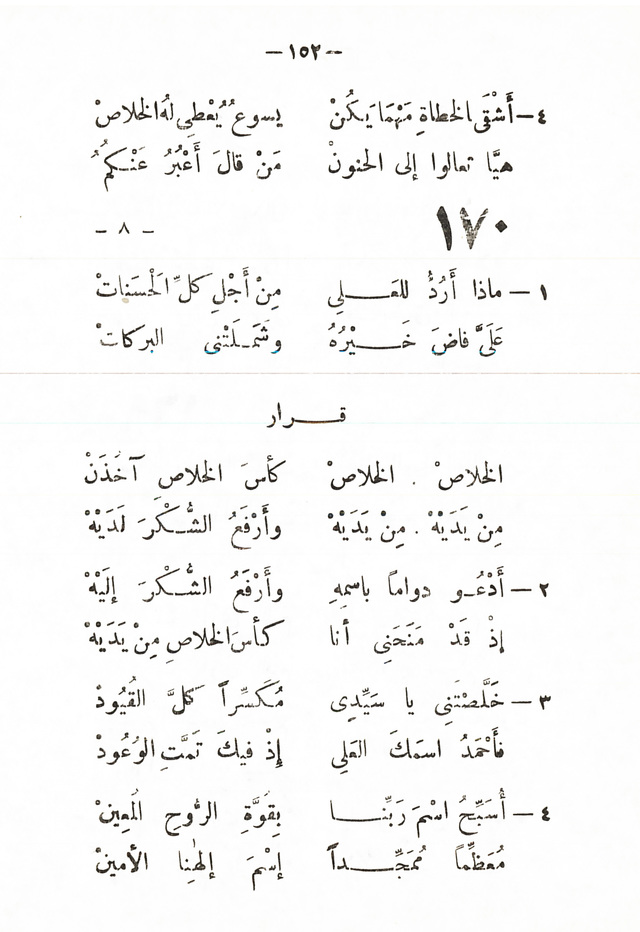 — ١٥٢ —
٤— أَشْقَى الخطاةِ مَهْمَا يَكُنْ يسوعُ يُعْطِي لهُ الخلاصْ
هيَّا تعالوا إلى الحنونْ مَنْ قالَ أَعْبُرُ عَنْكُمُ
١٧٠ — ٨ —
١ — ماذا أَرُدُّ للعَـلي مِنْ أَجْلِ كلِّ الْحَسَناتْ
عَلَيَّ فاضَ خَـيْرُهُ وشَمَـلَتْنى البركاتْ
قـرار
الخلاصْ . الخلاصْ كأسَ الخلاصِ آخُذَنْ
مِنْ يَدَيْهْ . مِنْ يَدَيْهْ وأَرْفَعُ الشُّـكْرَ لَدَيْهْ
٢ — أَدْعُـو دواماً باسمِهِ وأَرْفَعُ الشُّـكْرَ إِلَيْهْ
إذْ قَدْ مَنَحَنِى أنا كأسَ الخلاصِ مِنْ يَدَيْهْ
٣ — خَلَّصْتَنِى يا سَيِّدِى مُكَسِّراً كلَّ القُيُودْ
فأَحْمَدُ اسمَكَ العَلِى إذْ فيكَ تَمَّتِ الوُعُودْ
٤ — أُسَبِّحُ اسْمَ رَبِّنـا بِقوَّةِ الرُّوحِ المُعِينْ
مُعَظِّماً مُمَجِّـداً إسْمَ إلهِنا الأمينْ